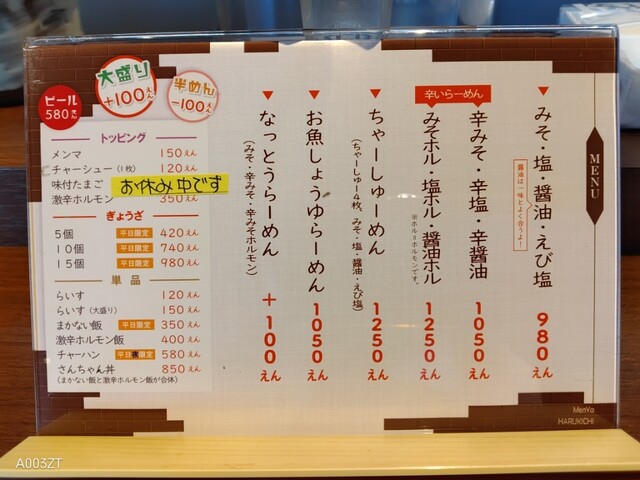 MENU
みそ・塩・醤油・えび塩
980えん
醤油は一味とよく合うよー!
辛いらーめん
辛みそ・辛塩・辛醤油
1050えん
みそホル・塩ホル・醤油ホル
※ホル=ホルモンです。
1250えん
ちゃーしゅーめん
(ちゃーしゅー4枚、みそ・塩・醤油・えび塩)
1250えん
お魚しょうゆらーめん
1050えん
なっとうらーめん
(みそ・辛みそ・辛みそホルモン)
+100えん
ビール
580えん
大盛り
+100えん
半めん
-100えん
トッピング
メンマ 150えん
チャーシュー(1枚) 120えん
味付たまご お休み中です
激辛ホルモン 350えん
ぎょうざ
5個 平日限定 420えん
10個 平日限定 740えん
15個 平日限定 980えん
単品
らいす 120えん
らいす(大盛り) 150えん
まかない飯 平日限定 350えん
激辛ホルモン飯 400えん
チャーハン 580えん
さんちゃん丼 850えん
(まかない飯と激辛ホルモン飯が合体)
MenYa
HARUKICHI
A003ZT